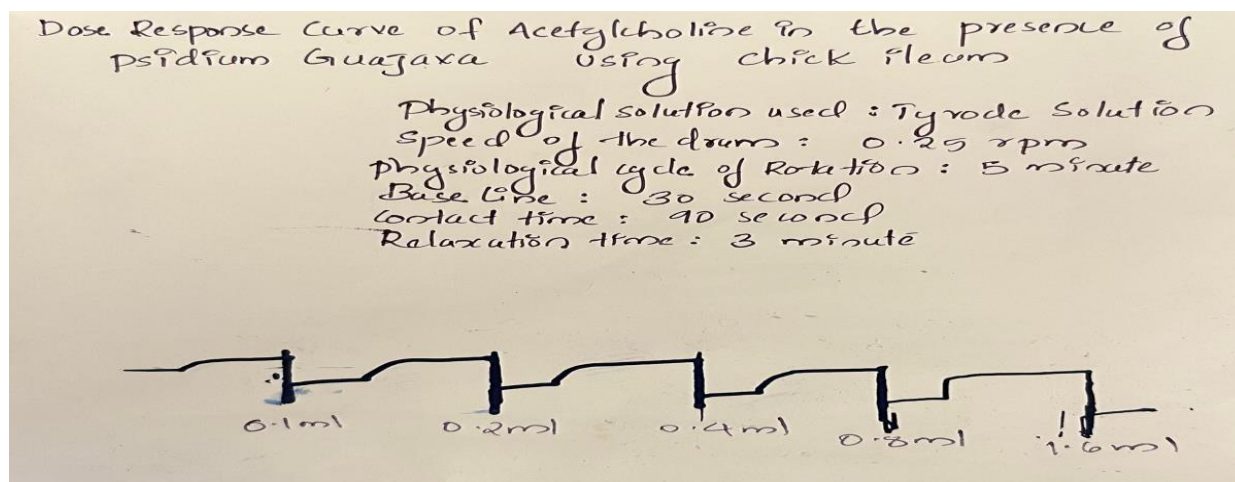 Dose Response Curve of Acetylcholine in the presence of
Psidium Guajava Using chick ileum
Physiological solution used : Tyrode Solution
Speed of the drum : 0.25 rpm
Physiological cycle of Rotation : 5 minute
Base Line : 30 second
Contact time : 90 second
Relaxation time : 3 minute
0.1ml 0.2ml 0.4ml 0.8ml 1.6ml